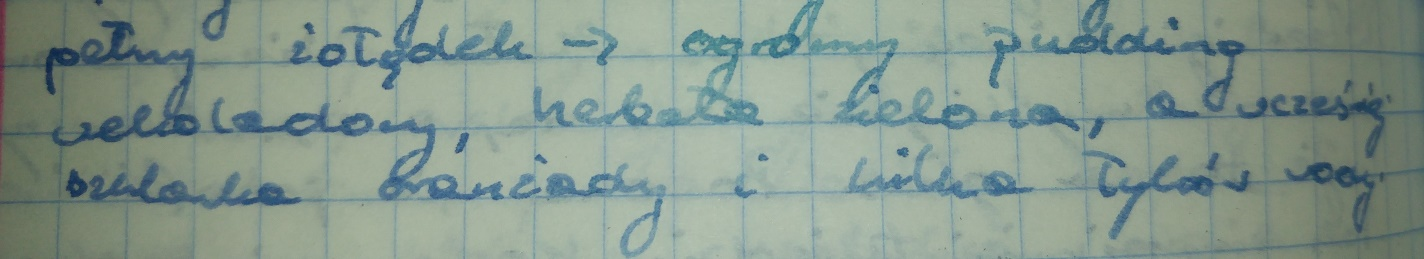 pełny żołądek → ogromny pudding
czekoladowy, herbata zielona, a wcześniej
szklanka oranżady i kilka łyków wody.